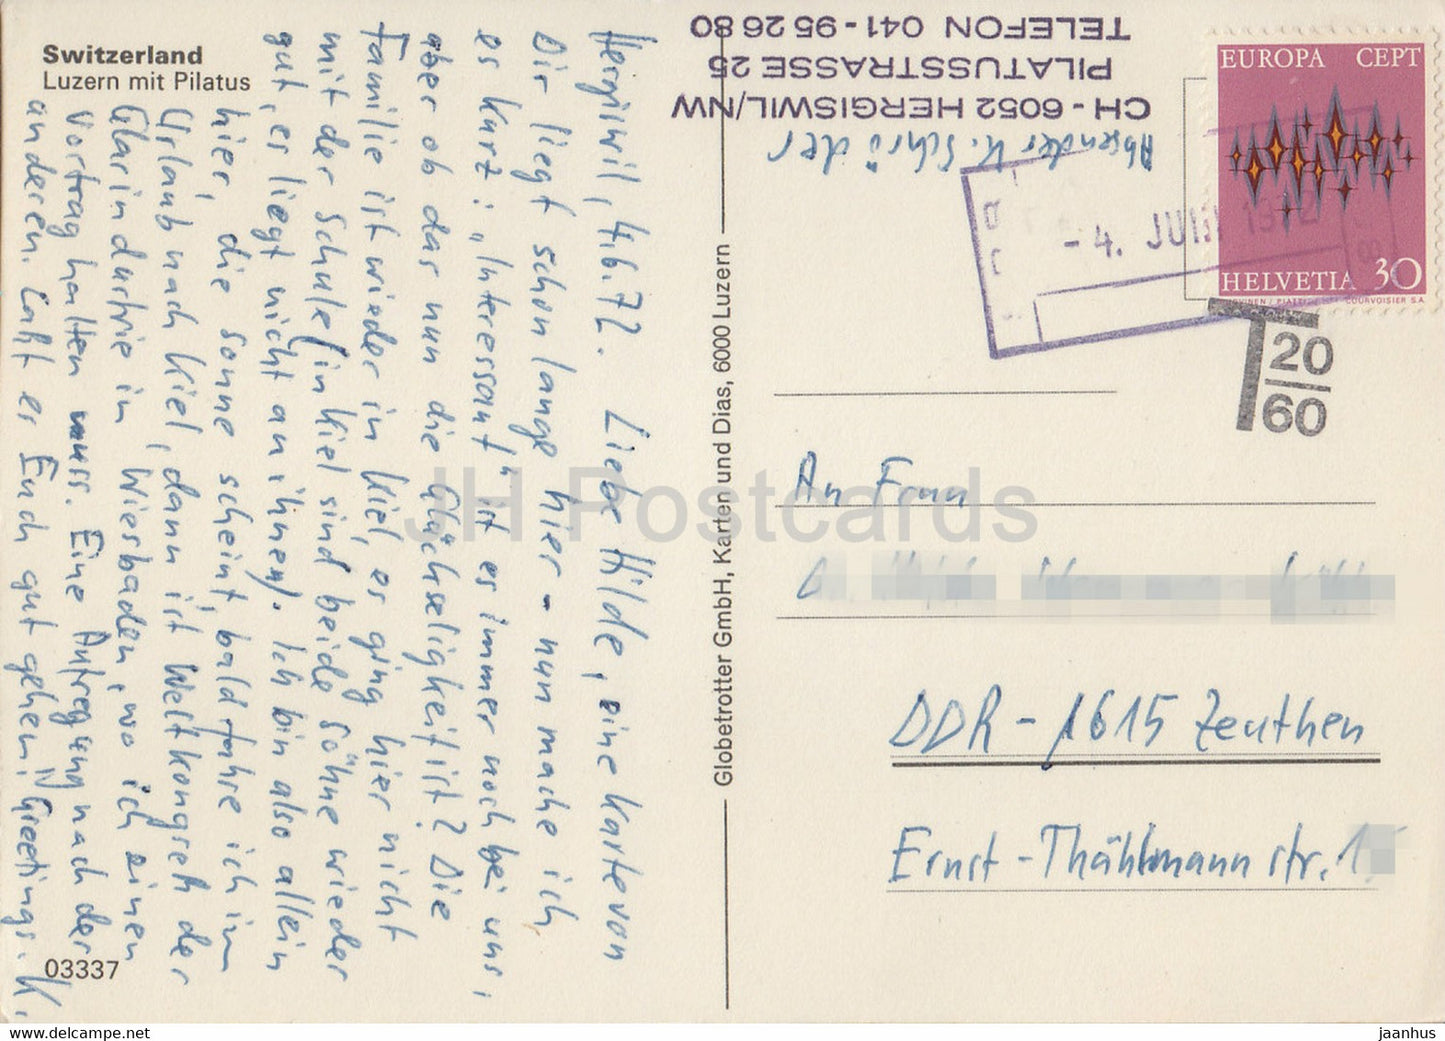 Switzerland
Luzern mit Pilatus
Hergiswil, 4.6.72. Liebe Hilde, eine Karte von
Dir liegt schon lange hier - nun mache ich
es kurz: „Interessant“ ist es immer noch bei uns,
aber ob das nun die Glückseligkeit ist? Die
Familie ist wieder in Kiel, es ging hier nicht
mit der Schule (in Kiel sind beide Söhne wieder
gut, es liegt nicht an ihnen). Ich bin also allein
hier, die Sonne scheint, bald fahre ich im
Urlaub nach Kiel, dann ist Weltkongreß der
in Wiesbaden, wo ich einen
Vortrag halten muss. Eine Aufregung nach der
anderen. Laßt es Euch gut gehen! Greetings. K.
03337
Globetrotter GmbH, Karten und Dias, 6000 Luzern
Absender K. Schröder
CH - 6052 HERGISWIL/NW
PILATUSSTRASSE 25
TELEFON 041 - 95 26 80
EUROPA CEPT
HELVETIA 30
COURVOISIER S.A.
- 4. JUNI 1972
T 20
60
An Frau
DDR - 1615 Zeuthen
Ernst - Thählmann str. 1
JH Postcards
www.hippostcard.com
jaanhus